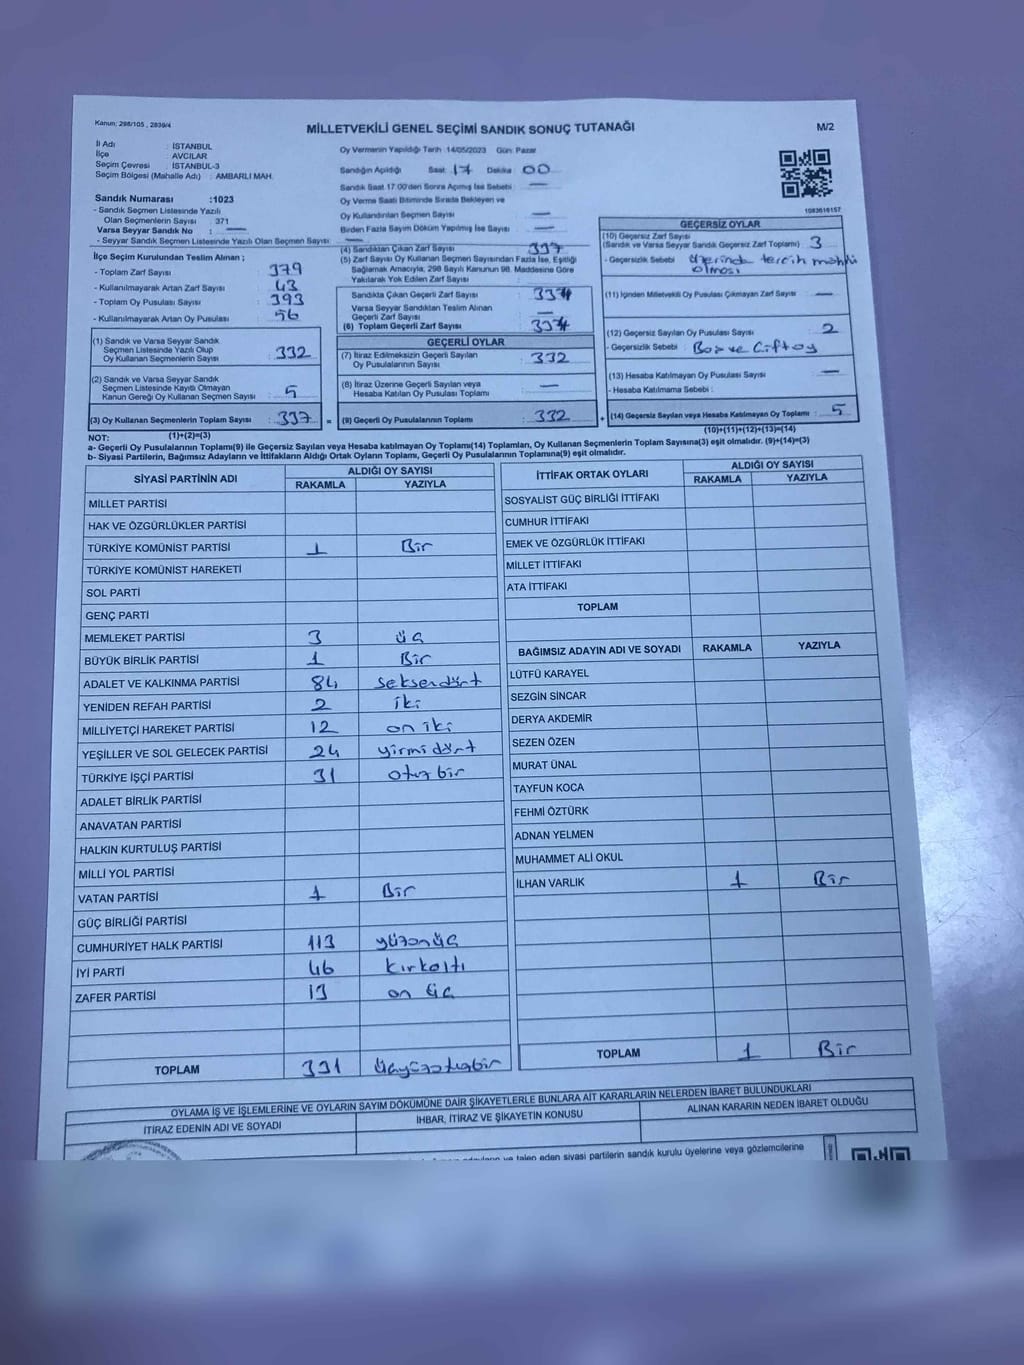 Kanun: 298/105 , 2839/4
MİLLETVEKİLİ GENEL SEÇİMİ SANDIK SONUÇ TUTANAĞI
M/2
İl Adı : İSTANBUL
İlçe : AVCILAR
Seçim Çevresi : İSTANBUL-3
Seçim Bölgesi (Mahalle Adı) : AMBARLI MAH.
Sandık Numarası :1023
- Sandık Seçmen Listesinde Yazılı
Olan Seçmenlerin Sayısı : 371
Varsa Seyyar Sandık No : —
- Seyyar Sandık Seçmen Listesinde Yazılı Olan Seçmen Sayısı : —
İlçe Seçim Kurulundan Teslim Alınan ;
- Toplam Zarf Sayısı : 379
- Kullanılmayarak Artan Zarf Sayısı : 43
- Toplam Oy Pusulası Sayısı : 393
- Kullanılmayarak Artan Oy Pusulası : 56
(1) Sandık ve Varsa Seyyar Sandık
Seçmen Listesinde Yazılı Olup
Oy Kullanan Seçmenlerin Sayısı : 332
(2) Sandık ve Varsa Seyyar Sandık
Seçmen Listesinde Kayıtlı Olmayan
Kanun Gereği Oy Kullanan Seçmen Sayısı : 5
(3) Oy Kullanan Seçmenlerin Toplam Sayısı : 337 =
(1)+(2)=(3)
Oy Vermenin Yapıldığı Tarih :14/05/2023 Gün: Pazar
Sandığın Açıldığı Saat :17 Dakika : 00
Sandık Saat 17:00'den Sonra Açılmış İse Sebebi : —
Oy Verme Saati Bitiminde Sırada Bekleyen ve
Oy Kullandırılan Seçmen Sayısı : —
Birden Fazla Sayım Döküm Yapılmış İse Sayısı : —
(4) Sandıktan Çıkan Zarf Sayısı : 337
(5) Zarf Sayısı Oy Kullanan Seçmen Sayısından Fazla İse, Eşitliği
Sağlamak Amacıyla, 298 Sayılı Kanunun 98. Maddesine Göre
Yakılarak Yok Edilen Zarf Sayısı :
Sandıkta Çıkan Geçerli Zarf Sayısı : 334
Varsa Seyyar Sandıktan Teslim Alınan
Geçerli Zarf Sayısı : —
(6) Toplam Geçerli Zarf Sayısı : 334
GEÇERLİ OYLAR
(7) İtiraz Edilmeksizin Geçerli Sayılan
Oy Pusulalarının Sayısı : 332
(8) İtiraz Üzerine Geçerli Sayılan veya
Hesaba Katılan Oy Pusulası Toplamı : —
(9) Geçerli Oy Pusulalarının Toplamı : 332 +
1083616157
GEÇERSİZ OYLAR
(10) Geçersiz Zarf Sayısı
(Sandık ve Varsa Seyyar Sandık Geçersiz Zarf Toplamı) : 3
- Geçersizlik Sebebi : üzerinde tercih mührü
olması
(11) İçinden Milletvekili Oy Pusulası Çıkmayan Zarf Sayısı : —
(12) Geçersiz Sayılan Oy Pusulası Sayısı : 2
- Geçersizlik Sebebi : Boş ve Çift oy
(13) Hesaba Katılmayan Oy Pusulası Sayısı : —
- Hesaba Katılmama Sebebi :
(14) Geçersiz Sayılan veya Hesaba Katılmayan Oy Toplamı : 5
(10)+(11)+(12)+(13)=(14)
NOT:
a- Geçerli Oy Pusulalarının Toplamı(9) ile Geçersiz Sayılan veya Hesaba katılmayan Oy Toplamı(14) Toplamları, Oy Kullanan Seçmenlerin Toplam Sayısına(3) eşit olmalıdır. (9)+(14)=(3)
b- Siyasi Partilerin, Bağımsız Adayların ve İttifakların Aldığı Ortak Oyların Toplamı, Geçerli Oy Pusulalarının Toplamına(9) eşit olmalıdır.
SİYASİ PARTİNİN ADI ALDIĞI OY SAYISI
RAKAMLA YAZIYLA
MİLLET PARTİSİ
HAK VE ÖZGÜRLÜKLER PARTİSİ
TÜRKİYE KOMÜNİST PARTİSİ 1 Bir
TÜRKİYE KOMÜNİST HAREKETİ
SOL PARTİ
GENÇ PARTİ
MEMLEKET PARTİSİ 3 üç
BÜYÜK BİRLİK PARTİSİ 1 Bir
ADALET VE KALKINMA PARTİSİ 84 seksendört
YENİDEN REFAH PARTİSİ 2 iki
MİLLİYETÇİ HAREKET PARTİSİ 12 on iki
YEŞİLLER VE SOL GELECEK PARTİSİ 24 yirmi dört
TÜRKİYE İŞÇİ PARTİSİ 31 otuz bir
ADALET BİRLİK PARTİSİ
ANAVATAN PARTİSİ
HALKIN KURTULUŞ PARTİSİ
MİLLİ YOL PARTİSİ
VATAN PARTİSİ 1 Bir
GÜÇ BİRLİĞİ PARTİSİ
CUMHURİYET HALK PARTİSİ 113 yüzonüç
İYİ PARTİ 46 kırkaltı
ZAFER PARTİSİ 13 on üç
TOPLAM 331 üçyüzotuzbir
İTTİFAK ORTAK OYLARI ALDIĞI OY SAYISI
RAKAMLA YAZIYLA
SOSYALİST GÜÇ BİRLİĞİ İTTİFAKI
CUMHUR İTTİFAKI
EMEK VE ÖZGÜRLÜK İTTİFAKI
MİLLET İTTİFAKI
ATA İTTİFAKI
TOPLAM
BAĞIMSIZ ADAYIN ADI VE SOYADI RAKAMLA YAZIYLA
LÜTFÜ KARAYEL
SEZGİN SİNCAR
DERYA AKDEMİR
SEZEN ÖZEN
MURAT ÜNAL
TAYFUN KOCA
FEHMİ ÖZTÜRK
ADNAN YELMEN
MUHAMMET ALİ OKUL
İLHAN VARLIK 1 Bir
TOPLAM 1 Bir
OYLAMA İŞ VE İŞLEMLERİNE VE OYLARIN SAYIM DÖKÜMÜNE DAİR ŞİKAYETLERLE BUNLARA AİT KARARLARIN NELERDEN İBARET BULUNDUKLARI
İTİRAZ EDENİN ADI VE SOYADI İHBAR, İTİRAZ VE ŞİKAYETİN KONUSU ALINAN KARARIN NEDEN İBARET OLDUĞU
ve talep eden siyasi partilerin sandık kurulu üyelerine veya gözlemcilerine